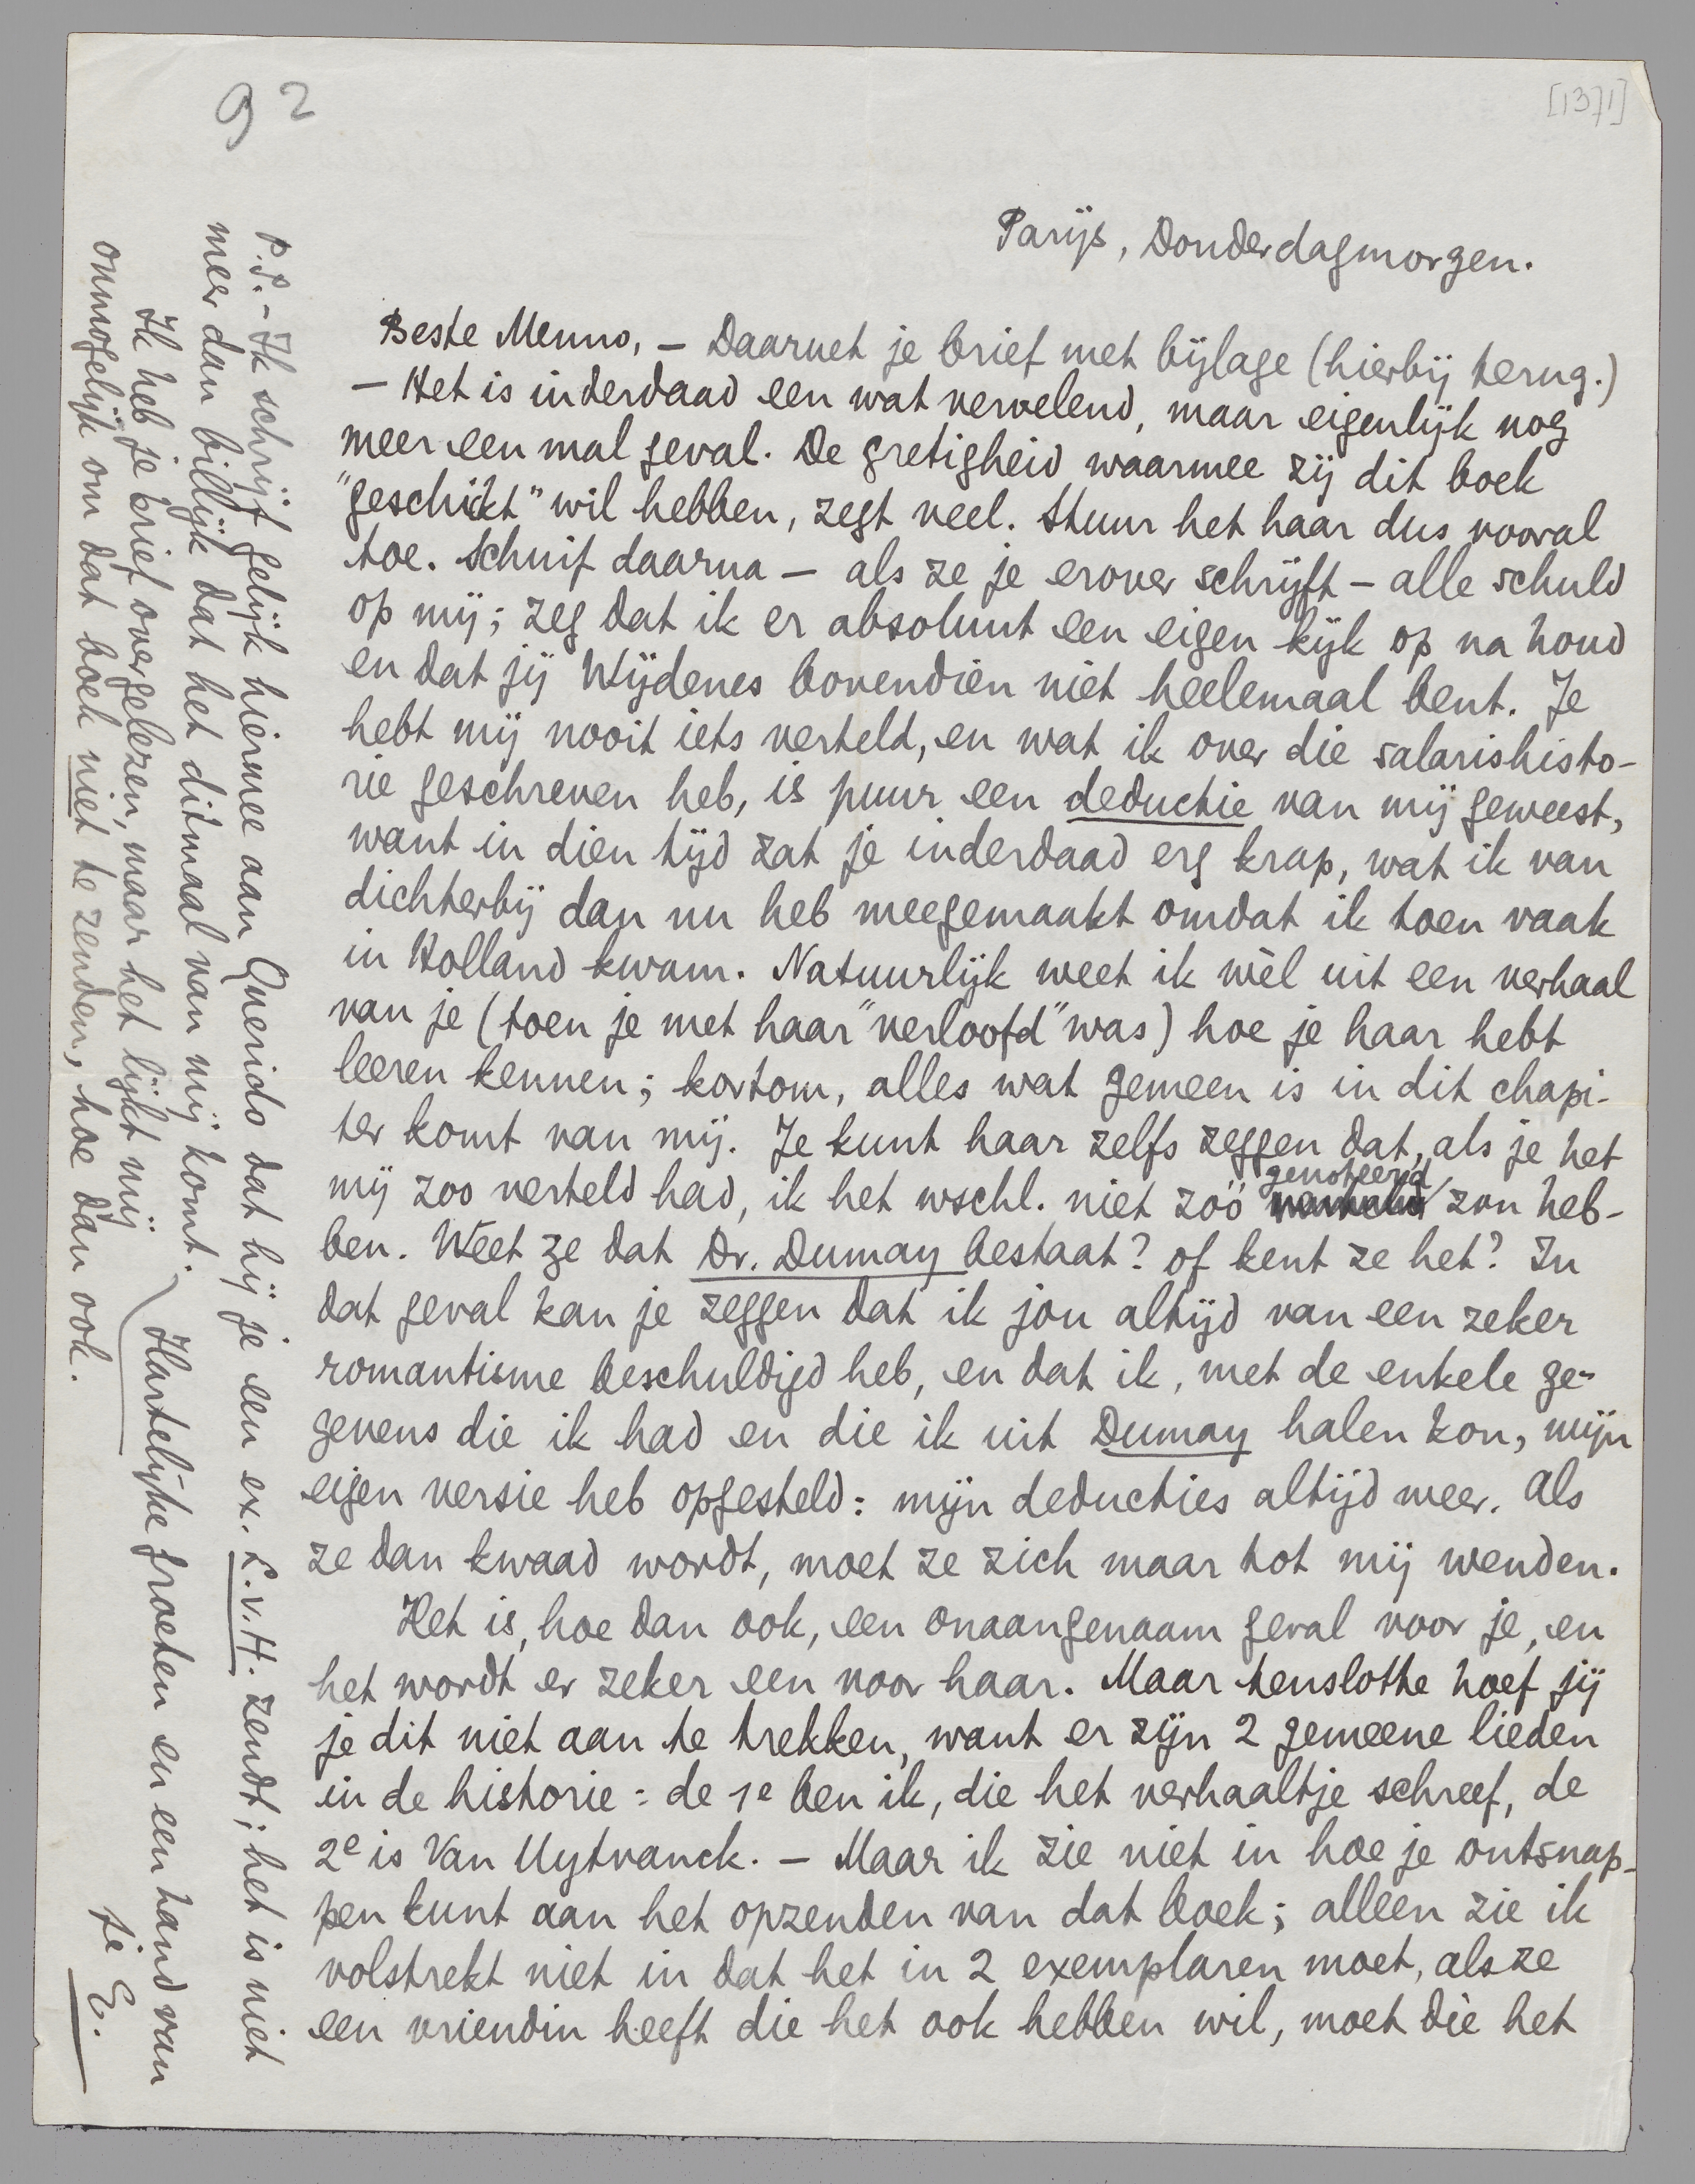 92
[1371]
Parijs, Donderdagmorgen.
Beste Menno, — Daarnet je brief met bijlage (hierbij terug.)
— Het is inderdaad een wat vervelend, maar eigenlijk nog
meer een mal geval. De gretigheid waarmee zij dit boek
"geschikt" wil hebben, zegt veel. Stuur het haar dus vooral
toe. Schuif daarna — als ze je erover schrijft — alle schuld
op mij; zeg dat ik er absoluut een eigen kijk op na houd
en dat jij Wijdenes bovendien niet heelemaal bent. Je
hebt mij nooit iets verteld, en wat ik over die salarishisto-
rie geschreven heb, is puur een deductie van mij geweest,
want in dien tijd zat je inderdaad erg krap, wat ik van
dichterbij dan nu heb meegemaakt omdat ik toen vaak
in Holland kwam. Natuurlijk weet ik wèl uit een verhaal
van je (toen je met haar "verloofd" was) hoe je haar hebt
leeren kennen; kortom, alles wat gemeen is in dit chapi-
ter komt van mij. Je kunt haar zelfs zeggen dat, als je het
mij zoo verteld had, ik het wschl. niet zóó genoteerd zou heb-
ben. Weet ze dat Dr. Dumay bestaat? of kent ze het? In
dat geval kan je zeggen dat ik jou altijd van een zeker
romantisme beschuldigd heb, en dat ik, met de enkele ge-
gevens die ik had en die ik uit Dumay halen kon, mijn
eigen versie heb opgesteld: mijn deducties altijd weer. Als
ze dan kwaad wordt, moet ze zich maar tot mij wenden.
Het is, hoe dan ook, een onaangenaam geval voor je, en
het wordt er zeker een voor haar. Maar tenslotte hoef jij
je dit niet aan te trekken, want er zijn 2 gemeene lieden
in de historie: de 1e ben ik, die het verhaaltje schreef, de
2e is Van Uytvanck. — Maar ik zie niet in hoe je ontsnap-
pen kunt aan het opzenden van dat boek; alleen zie ik
volstrekt niet in dat het in 2 exemplaren moet, als ze
een vriendin heeft die het ook hebben wil, moet die het
P.S. - Ik schrijf gelijk hiermee aan Querido dat hij je een ex. L.v.H. zendt; het is niet
meer dan billijk dat het ditmaal van mij komt.
Hartelijke groeten en een hand van
je E.
Ik heb je brief overgelezen, maar het lijkt mij
onmogelijk om dat boek niet te zenden, hoe dan ook.